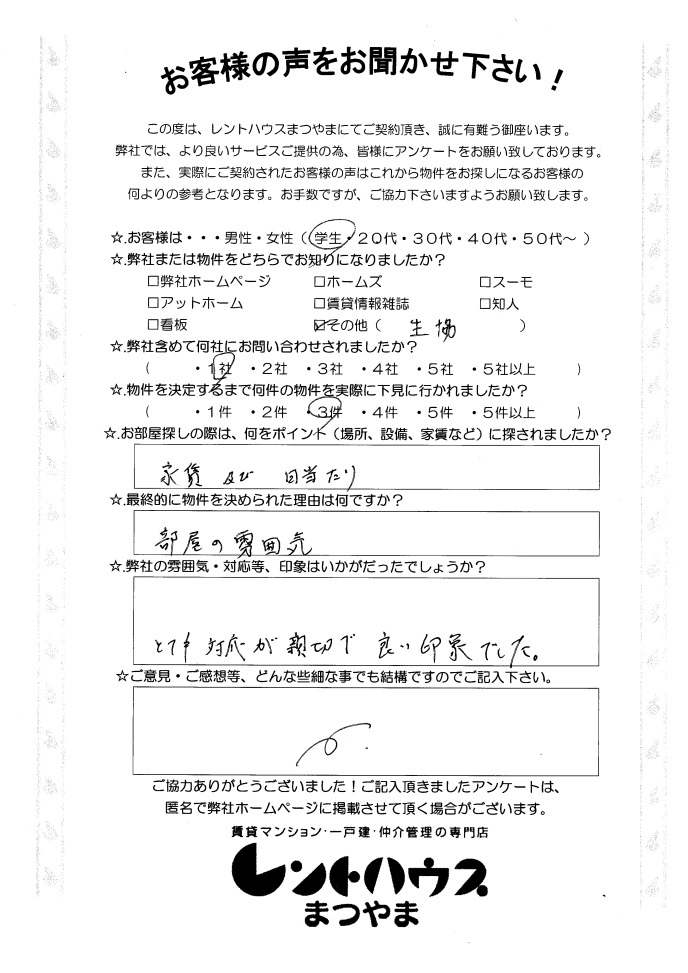 お客様の声をお聞かせ下さい！
この度は、レントハウスまつやまにてご契約頂き、誠に有難う御座います。
弊社では、より良いサービスご提供の為、皆様にアンケートをお願い致しております。
また、実際にご契約されたお客様の声はこれから物件をお探しになるお客様の
何よりの参考となります。お手数ですが、ご協力下さいますようお願い致します。
☆.お客様は・・・男性・女性（学生・２０代・３０代・４０代・５０代～）
☆.弊社または物件をどちらでお知りになりましたか？
□弊社ホームページ　□ホームズ　□スーモ
□アットホーム　□賃貸情報雑誌　□知人
□看板　☑その他（　生協　）
☆.弊社含めて何社にお問い合わせされましたか？
（　・１社　・２社　・３社　・４社　・５社　・５社以上　）
☆.物件を決定するまで何件の物件を実際に下見に行かれましたか？
（　・１件　・２件　・３件　・４件　・５件　・５件以上　）
☆.お部屋探しの際は、何をポイント（場所、設備、家賃など）に探されましたか？
家賃 及び 日当たり
☆.最終的に物件を決められた理由は何ですか？
部屋の雰囲気
☆.弊社の雰囲気・対応等、印象はいかがだったでしょうか？
とても 対応が親切で 良い印象でした。
☆ご意見・ご感想等、どんな些細な事でも結構ですのでご記入下さい。
ご協力ありがとうございました！ご記入頂きましたアンケートは、
匿名で弊社ホームページに掲載させて頂く場合がございます。
賃貸マンション・一戸建・仲介管理の専門店
レントハウス
まつやま